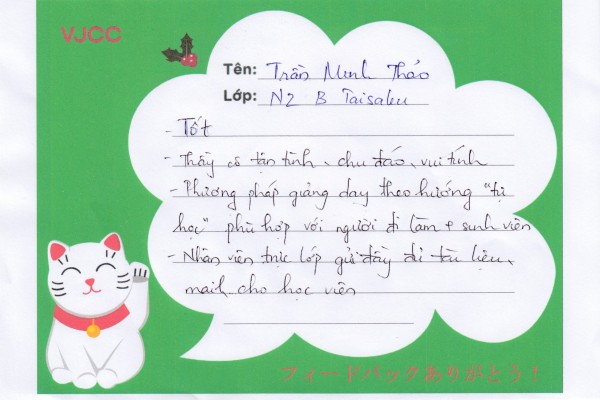 VJCC
Tên: Trần Minh Thảo
Lớp: N2 B Taisaku
- Tốt
- Thầy cô tận tình, chu đáo, vui tính
- Phương pháp giảng dạy theo hướng "tự
học" phù hợp với người đi làm + sinh viên
- Nhân viên trực lớp gửi đầy đủ tài liệu,
mail cho học viên
フィードバックありがとう！